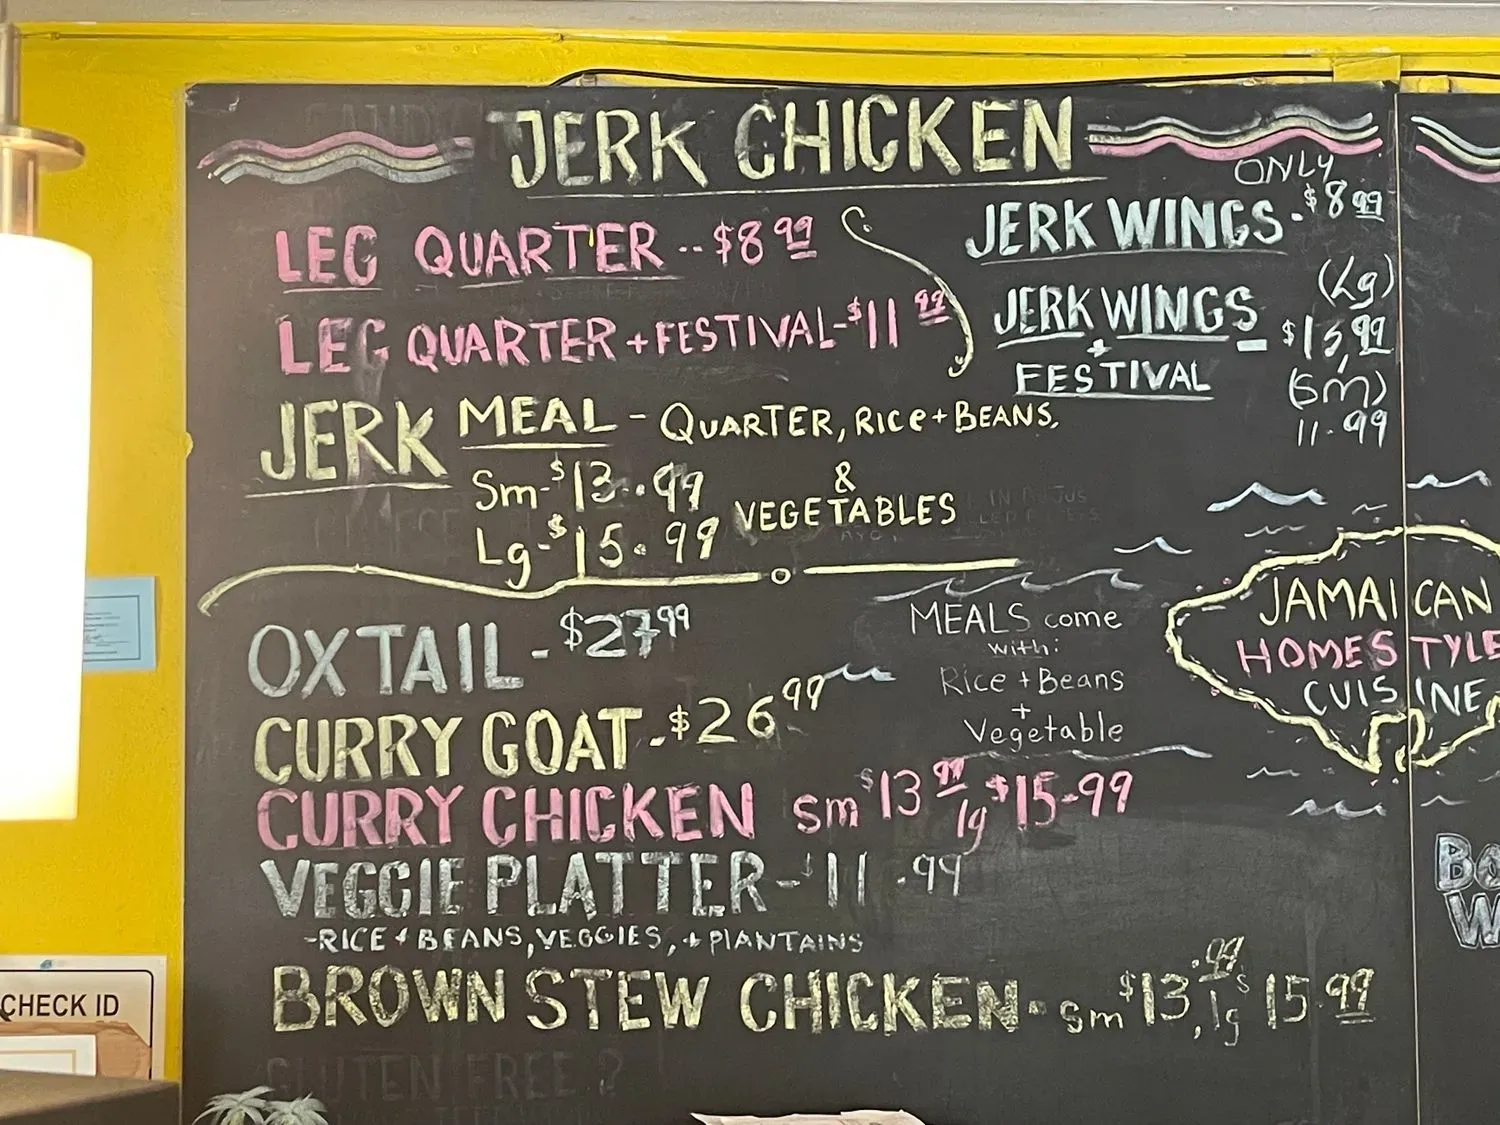 JERK CHICKEN
LEG QUARTER -- $8 99
LEG QUARTER + FESTIVAL - $11 99
ONLY
JERK WINGS - $8 99
(Lg)
JERK WINGS - $15,99
+
FESTIVAL
(Sm)
11.99
JERK MEAL - QUARTER, RICE + BEANS,
&
VEGETABLES
Sm - $13.99
Lg - $15.99
OXTAIL - $27 99
CURRY GOAT - $26 99
MEALS come
with:
Rice + Beans
+
Vegetable
CURRY CHICKEN sm $13 99 lg $15-99
VEGGIE PLATTER - $11.99
- RICE + BEANS, VEGGIES, + PLANTAINS
BROWN STEW CHICKEN - sm $13.99, lg $15.99
GLUTEN FREE?
JAMAICAN
HOMESTYLE
CUISINE
CHECK ID